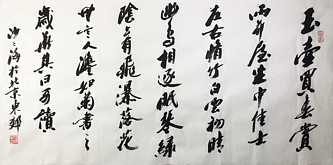 玉壺買春賞
雨茆屋坐中佳士
左右脩竹白雲初晴
幽鳥相逐眠琴綠
陰上有飛瀑落花
無言人澹如菊書之
歲華其曰可讀
於北京東郊